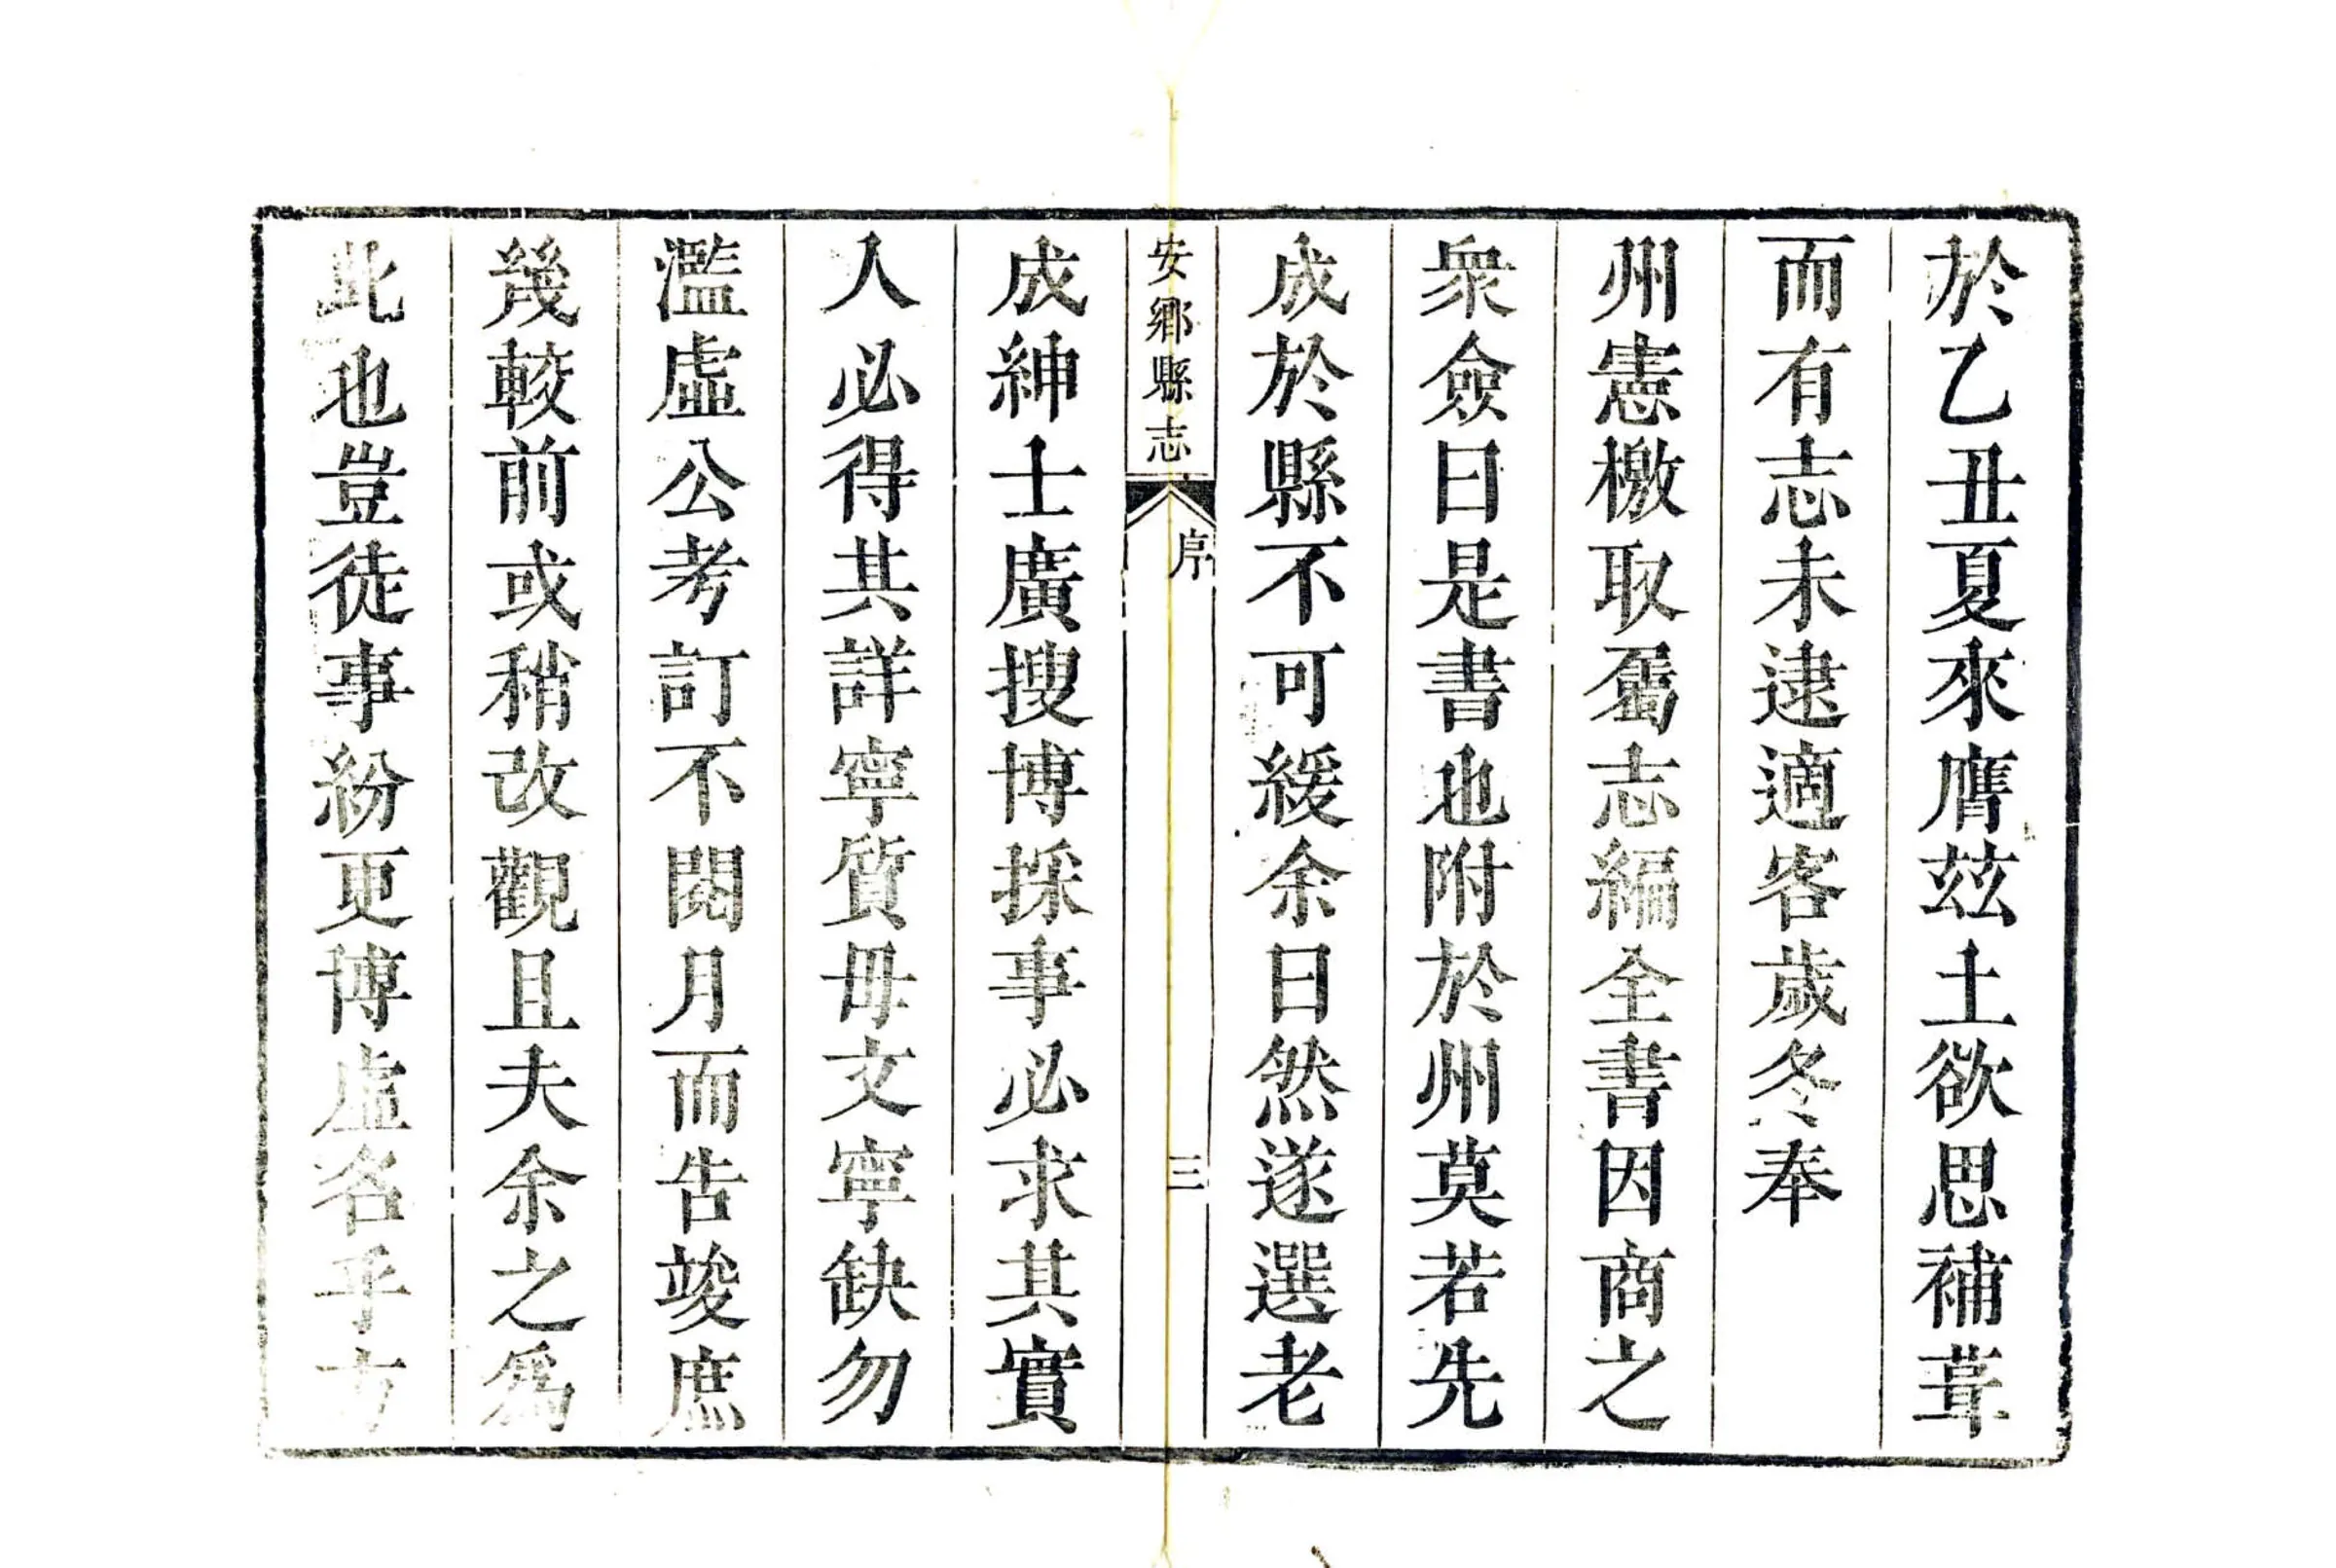 於乙丑夏來膺茲土欲思補葺
而有志未逮適客歲冬奉
州憲檄取屬志編全書因商之
衆僉曰是書也附於州莫若先
成於縣不可緩余曰然遂選老
安鄉縣志
序
三
成紳士廣搜博採事必求其實
人必得其詳寧質毋文寧缺勿
濫虛公考訂不閱月而告竣庶
幾較前或稍改觀且夫余之爲
此也豈徒事紛更博虛名乎方